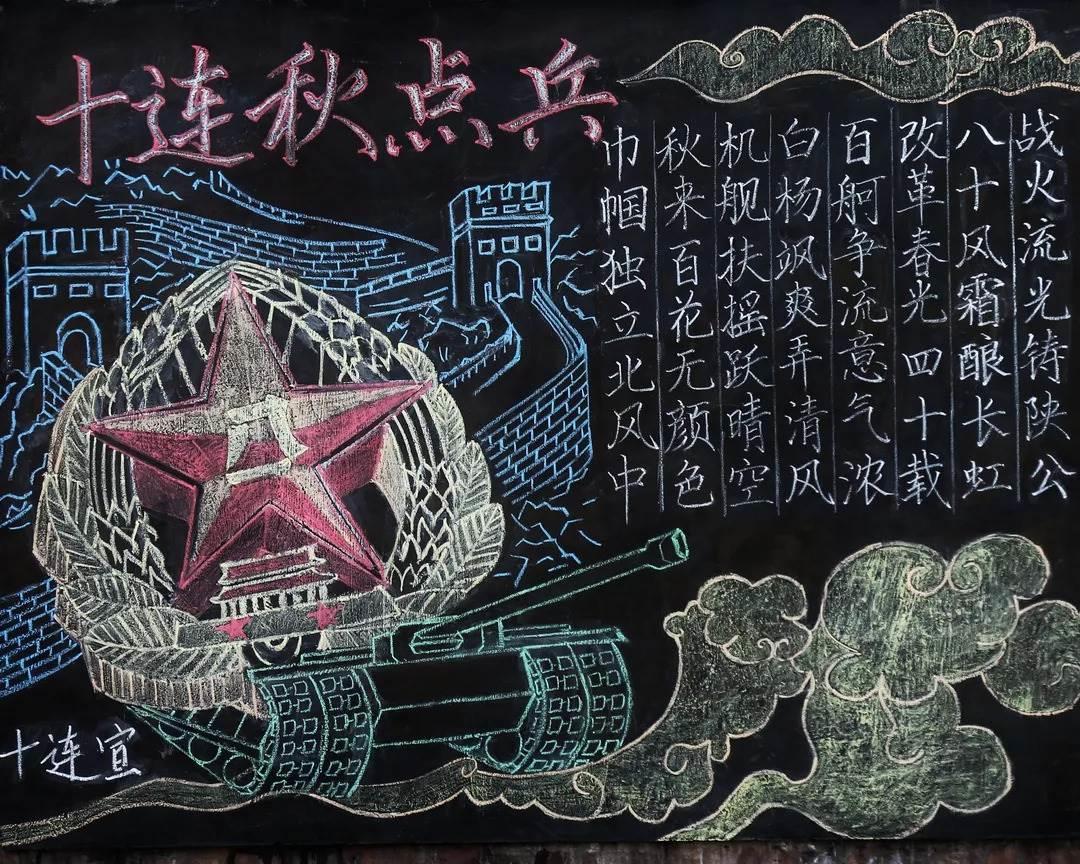 十连秋点兵
战火流光铸陕公
八十风霜酿长虹
改革春光四十载
百舸争流意气浓
白杨飒爽弄清风
机舰扶摇跃晴空
秋来百花无颜色
巾帼独立北风中
八一
十连宣